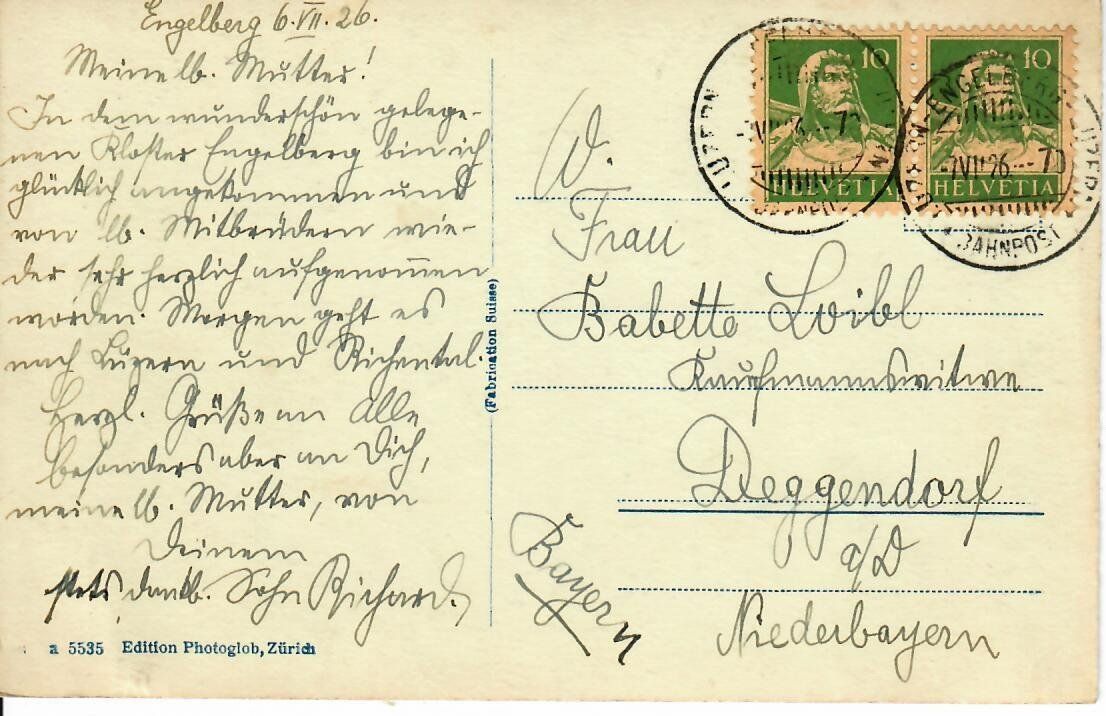 Engelberg 6.VII.26.
Meine lb. Mutter!
In dem wunderschön gelege-
nen Kloster Engelberg bin ich
glücklich angekommen und
von lb. Mitbrüdern wie-
der sehr herzlich aufgenommen
worden. Morgen geht es
nach Luzern und Richental.
Herzl. Grüße an alle
besonders aber an Dich,
meine lb. Mutter, von
Deinem
stets dankb. Sohn Richard.
a 5535 Edition Photoglob, Zürich
(Fabrication Suisse)
10 10
HELVETIA HELVETIA
LUZERN
ENGELBERG
LUZERN
-7VII26.--7
BAHNPOST
W.
Frau
Babette Loibl
Kaufmannswitwe
Deggendorf
a/D
Bayern
Niederbayern